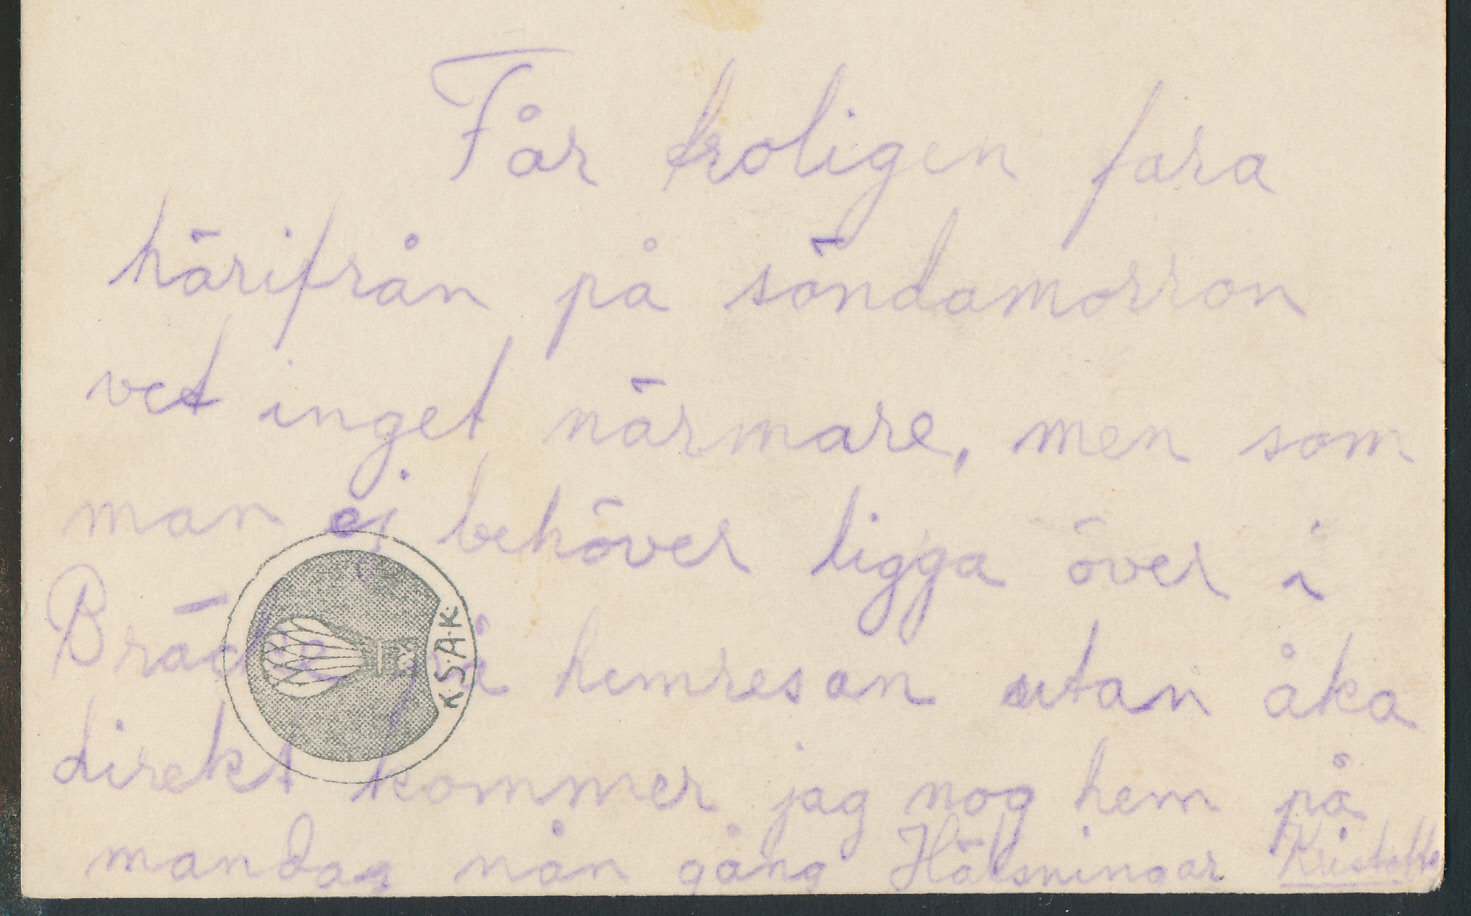 Får troligen fara
härifrån på söndamorron
vet inget närmare, men som
man ej behöver ligga över i
Bräcke på hemresan utan åka
direkt kommer jag nog hem på
mandag nån gång Hälsningar
K.S.A.K.